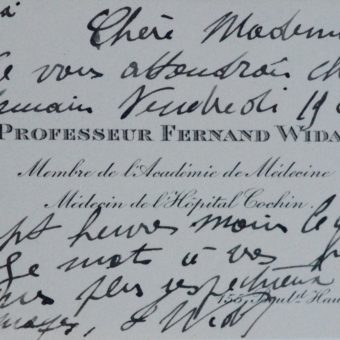 Chère Mademoi
e vous attendrais ch
emain Vendredi 19
PROFESSEUR FERNAND WIDA
Membre de l'Académie de Médecine
Médecin de l'Hôpital Cochin
pt heures moins le q
Je mets à vos
es plus respectueux
155, Boulᵈ Hau
mages, F Widal